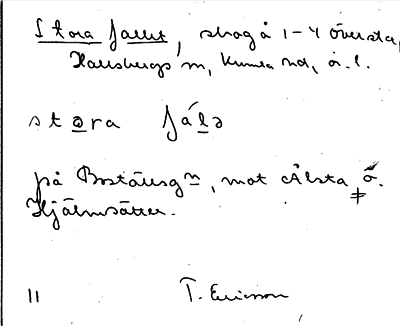 Stora fallet, skog å 1-4 översta,
Hallsbergs m, Kumla hd, Ö. l.
stora fálə
på Bostäusg n, mot Älsta ö.
Hjälmsätter.
11 T. Ericsson